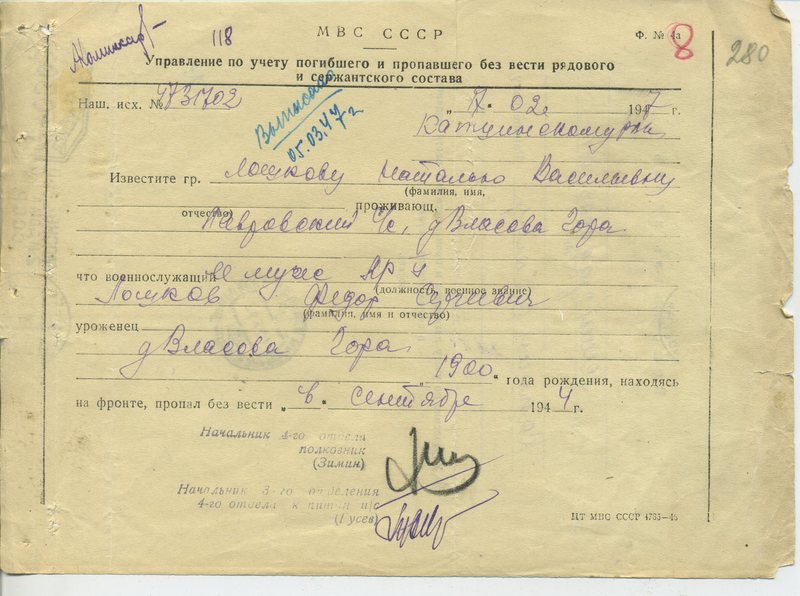 118
МВС СССР
Ф. № 4а
8
280
Управление по учету погибшего и пропавшего без вести рядового
и сержантского состава
Наш. исх. № 4731702
„7. 02. 1947 г.
Выписано
05.03.47 г
Известите гр. Ломкову Наталью Васильевну
(фамилия, имя,
отчество) проживающ.
д Власова Гора
что военнослужащий муж
(должность, военное звание)
Ломков Федор
(фамилия, имя и отчество)
уроженец
д Власова Гора
„1900 „ года рождения, находясь
на фронте, пропал без вести „в. сентябре 1944 г.
Начальник 4-го отдела
полковник
(Зимин)
Начальник 3-го отделения
4-го отдела капитан и/с
(Гусев)
ЦТ МВС СССР